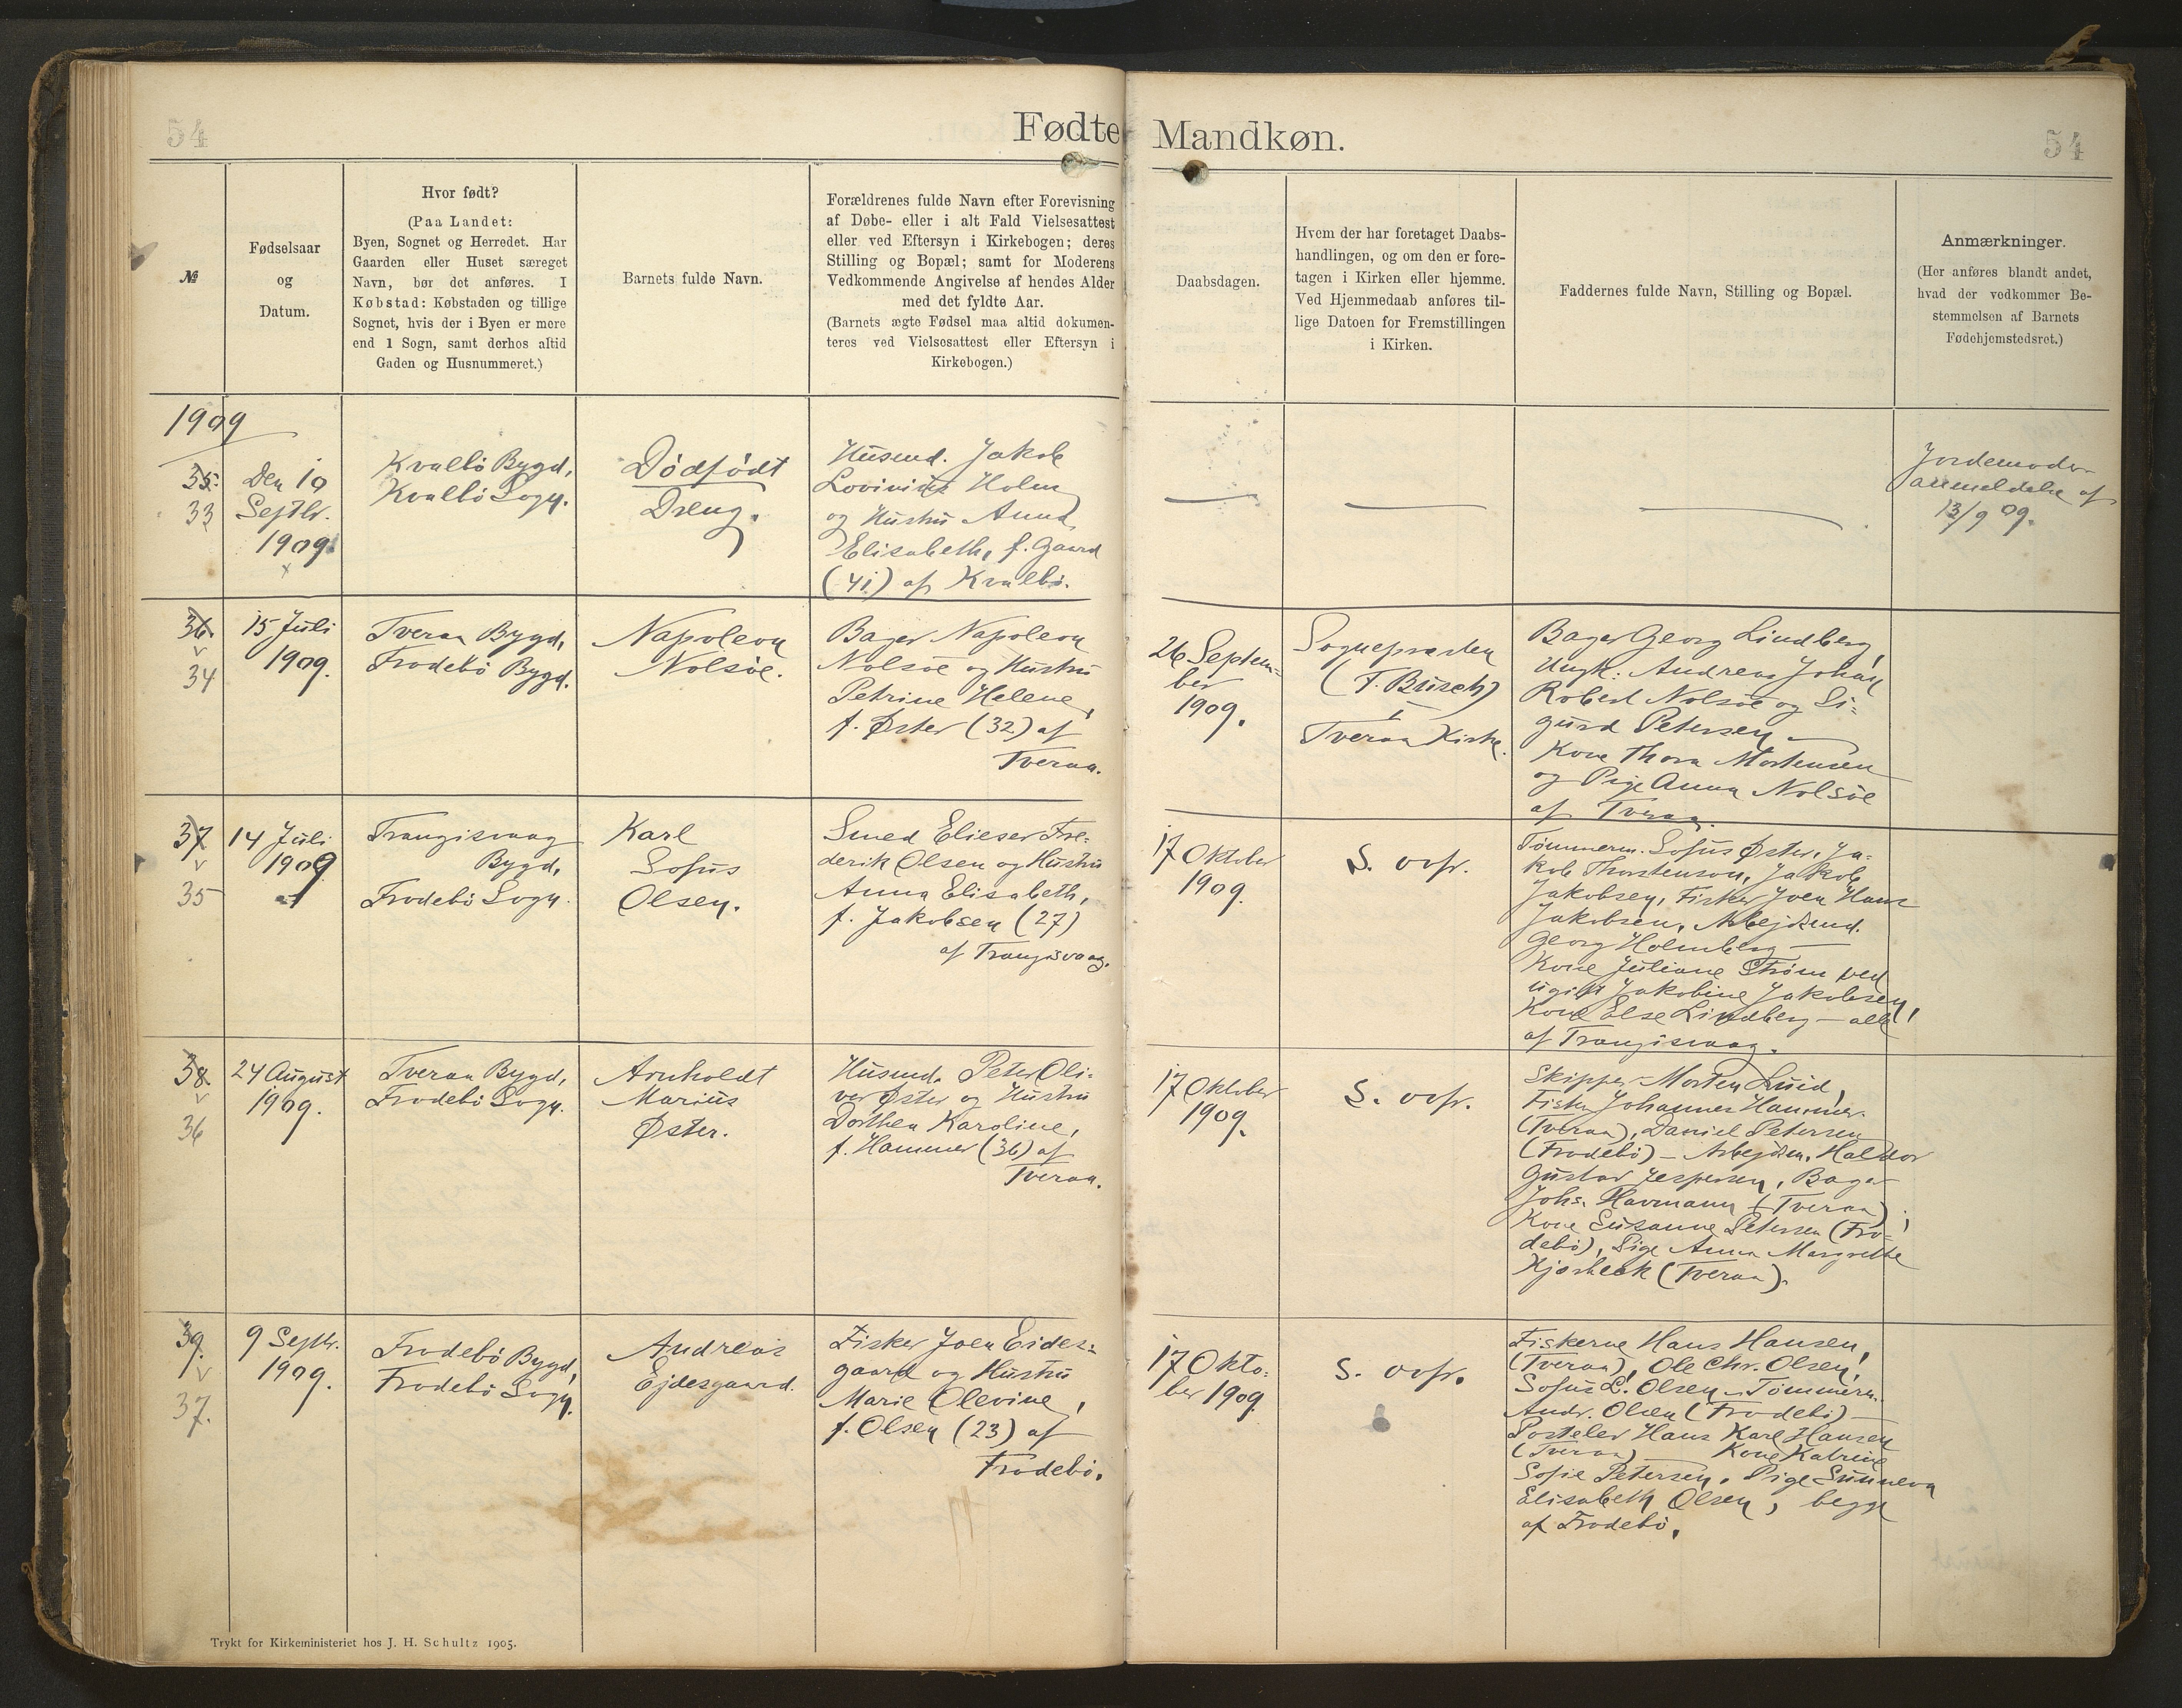 54
Fødte
Mandkøn.
54
№
Fødselsaar
og
Datum.
Hvor født?
(Paa Landet:
Byen, Sognet og Herredet. Har
Gaarden eller Huset særeget
Navn, bør det anføres. I
Købstad: Købstaden og tillige
Sognet, hvis der i Byen er mere
end 1 Sogn, samt derhos altid
Gaden og Husnummeret.)
Barnets fulde Navn.
Forældrenes fulde Navn efter Forevisning
af Døbe- eller i alt Fald Vielsesattest
eller ved Eftersyn i Kirkebogen; deres
Stilling og Bopæl; samt for Moderens
Vedkommende Angivelse af hendes Alder
med det fyldte Aar.
(Barnets ægte Fødsel maa altid dokumen-
teres ved Vielsesattest eller Eftersyn i
Kirkebogen.)
Daabsdagen.
Hvem der har foretaget Daabs-
handlingen, og om den er fore-
tagen i Kirken eller hjemme.
Ved Hjemmedaab anføres til-
lige Datoen for Fremstillingen
i Kirken.
Faddernes fulde Navn, Stilling og Bopæl.
Anmærkninger.
(Her anføres blandt andet,
hvad der vedkommer Be-
stemmelsen af Barnets
Fødehjemstedsret.)
1909
35.
33
Den 10
Septbr.
1909
Kvalbö Bygd,
Kvalbö Sogn.
Dödfödt
Dreng.
Husmd. Jakob
Lovinius Holm
og Hustru Anna
Elisabeth, f. Gaard
(41) af Kvalbö.
Jordemoder
anmeldelse af
13/9 09.
36.
34
15 Juli
1909.
Tveraa Bygd,
Frodebö Bygd.
Napoleon
Nolsöe.
Bager Napoleon
Nolsöe og Hustru
Petrine Helene,
f. Øster (32) af
Tveraa.
26 Septem-
ber
1909.
Sognepræsten
(F. Busch)
i
Tveraa Kirke.
Bager Georg Lindberg,
Ungk. Andreas Johan
Robert Nolsöe og Si-
gurd Petersen –
Kone Thora Mortensen
og Pige Anna Nolsöe
af Tveraa.
37
35
14 Juli
1909
Trangisvaag
Bygd,
Frodebö Sogn.
Karl
Sofus
Olsen.
Smed Elieser Fre-
derik Olsen og Hustru
Anna Elisabeth,
f. Jakobsen (27)
af Trangisvaag.
17 Oktober
1909.
S. ovfr.
Tömmerm. Sofus Øster, Ja-
kob Thorstenson, Jakob
Jakobsen, Fisker Joen Hans
Jakobsen, Arbejdsmd.
Georg Holmberg –
Kone Juliane Ström
ugift Jakobine Jakobsen,
Kone Else Lindberg – alle
af Trangisvaag.
38.
36
24 August
1909.
Tveraa Bygd,
Frodebö Sogn.
Arnholdt
Marius
Øster.
Husmd. Peter Oli-
ver Øster og Hustru
Dorthea Karoline,
f. Hammer (36) af
Tveraa.
17 Oktober
1909.
S. ovfr.
Skipper Morten Luid,
Fisker Johannes Hammer
(Tveraa), Daniel Petersen
(Frodebö) – Arbejdsm. Haldor
Gustav Jespersen, Bager
Johs. Havmann (Tveraa).
Kone Susanne Petersen (Fro-
debö), Pige Anna Margrethe
Kjærbæk (Tveraa).
39.
37.
9 Septbr.
1909.
Frodebö Bygd,
Frodebö Sogn.
Andreas
Ejdesgaard.
Fisker Joen Eides-
gaard og Hustru
Marie Olevine,
f. Olsen (23) af
Frodebö.
17 Okto-
ber 1909.
S. ovfr.
Fiskerne Hans Hansen,
(Tveraa), Ole Chr. Olsen,
Sofus L. Olsen – Tömmerm.
Andr. Olsen (Frodebö) –
Hans Karl Hansen
(Tveraa) Kone Katrine
Sofie Petersen, Pige Sunneva
Elisabeth Olsen, begge
af Frodebö.
Trykt for Kirkeministeriet hos J. H. Schultz 1905.